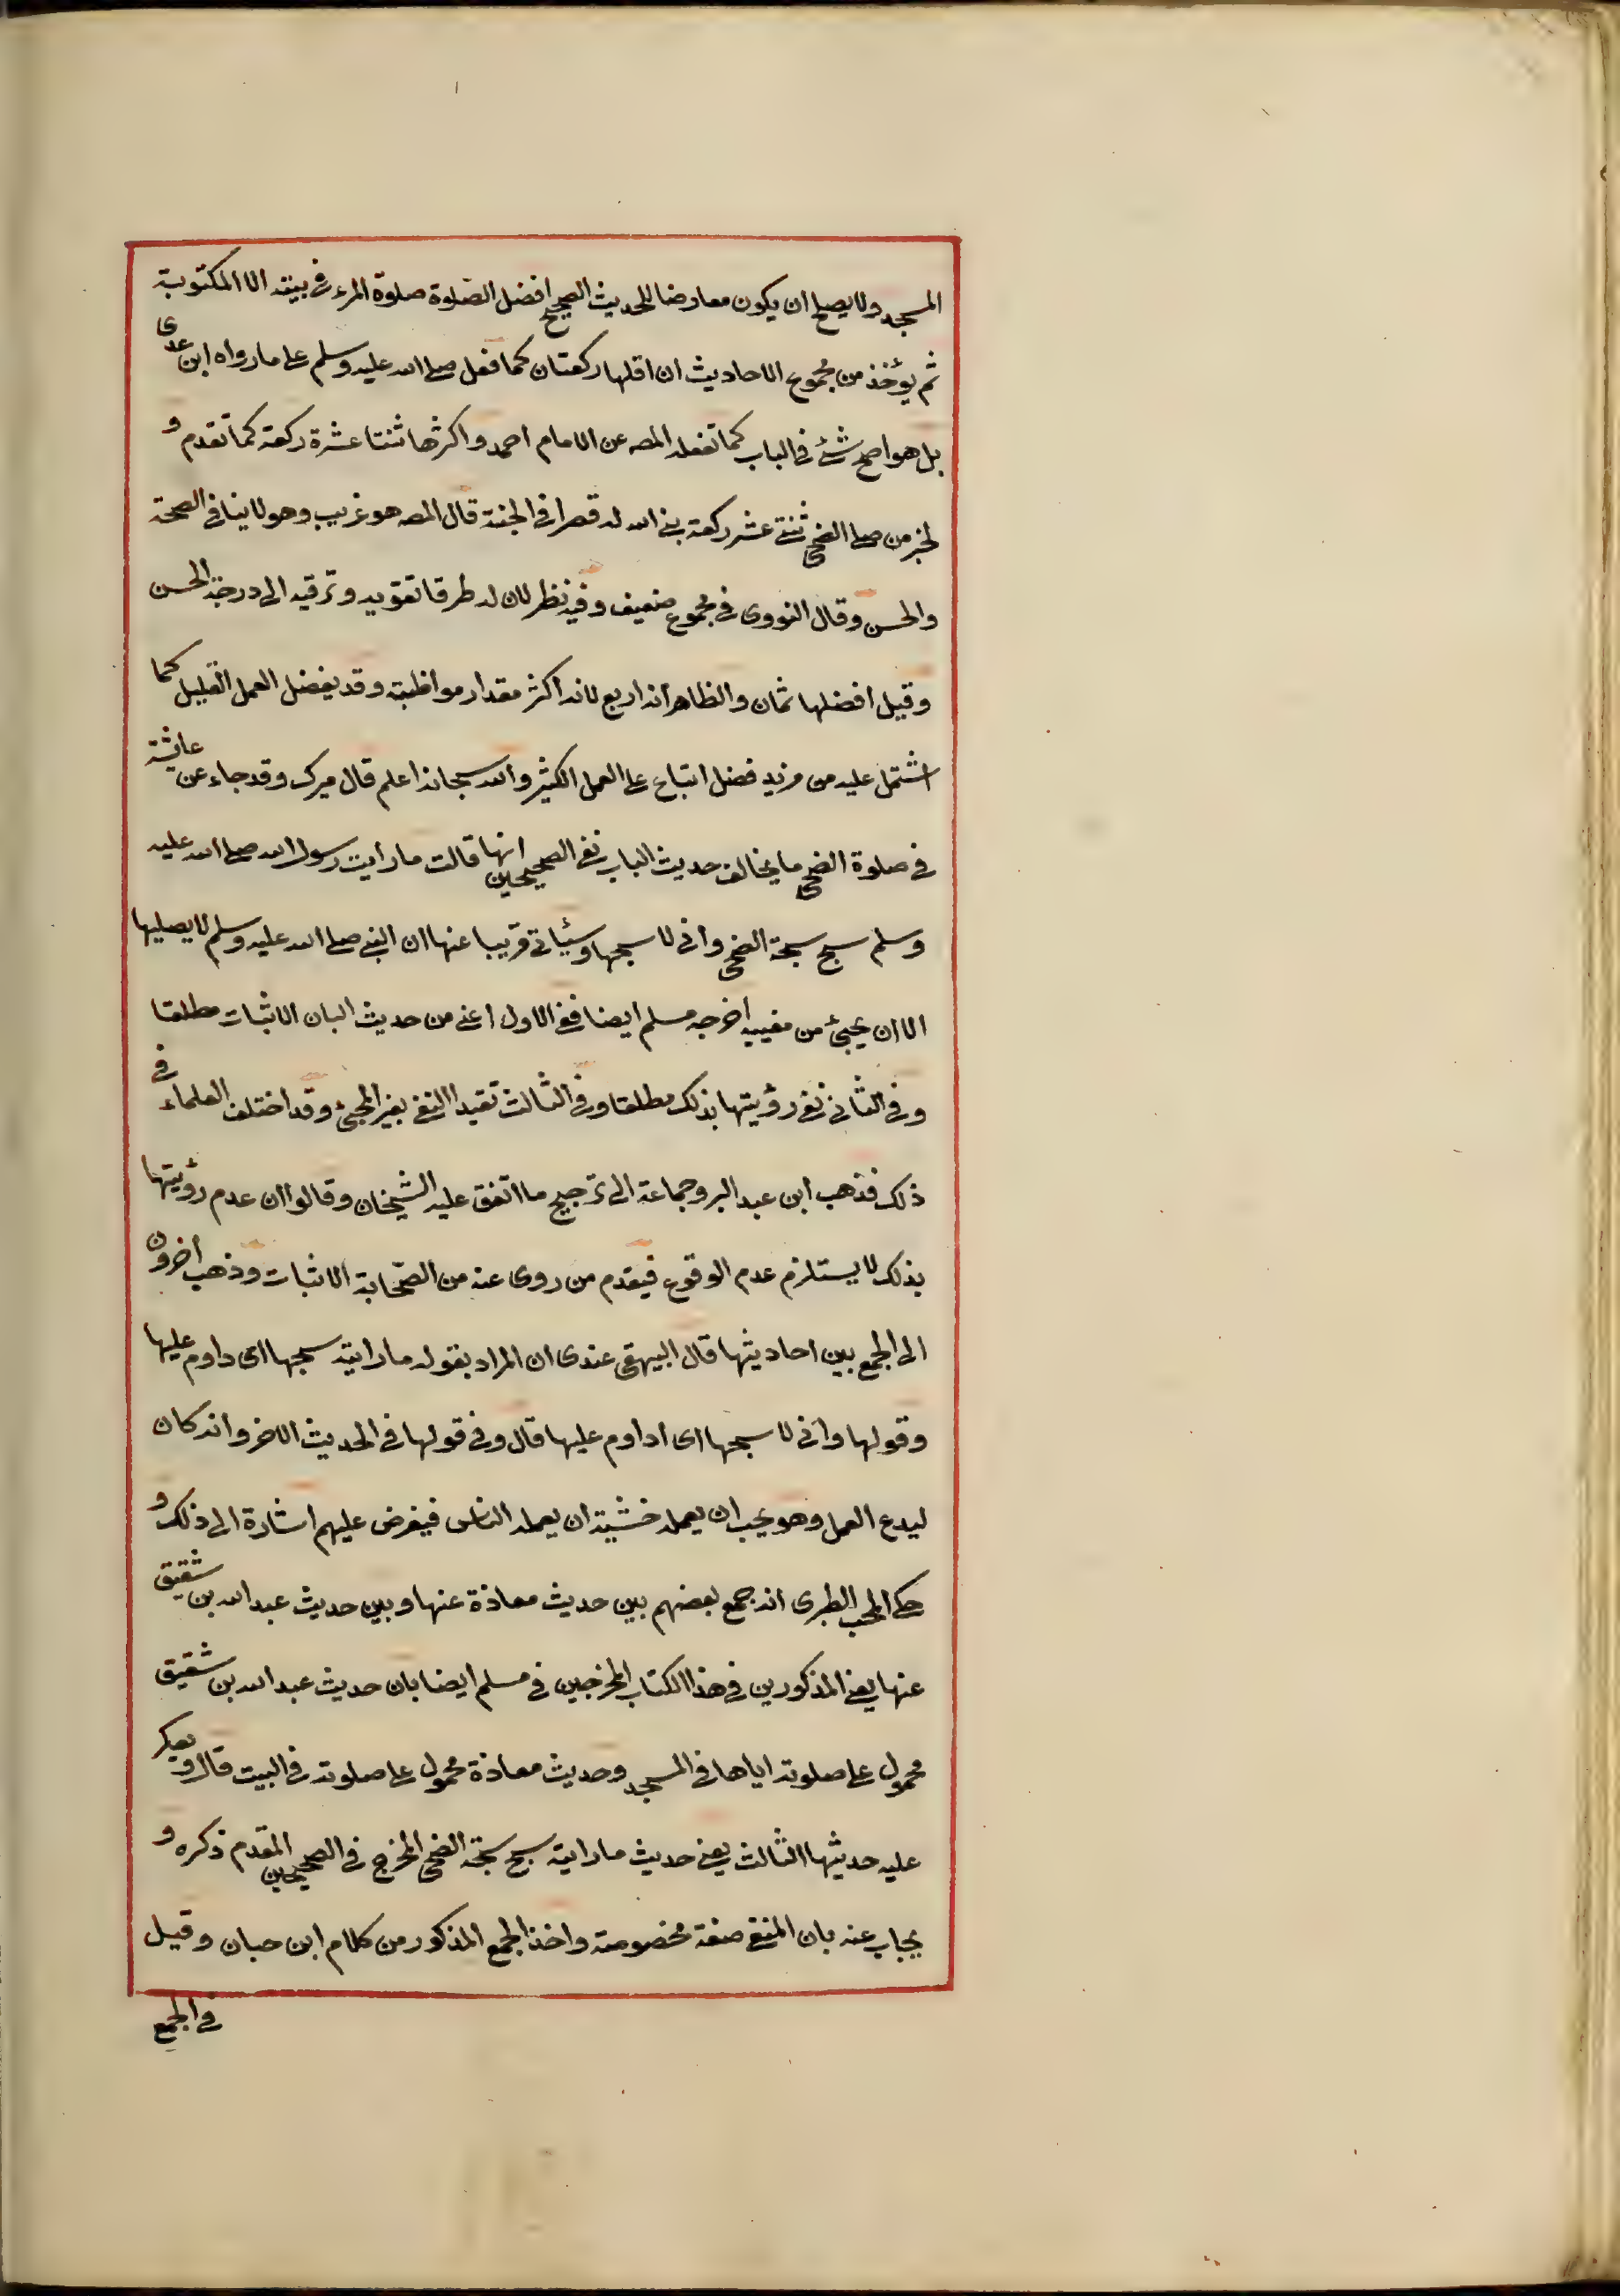 المسجد ولا يصلح ان يكون معارضا للحديث الصحيح افضل الصّلوة صلوة المرء فى بيته الا المكتوبة
ثم يؤخذ من مجموع الاحاديث ان اقلها ركعتان كما فعل صلى الله عليه وسلم على ما رواه ابن عدى
بل هو اصح شئ فى الباب كما نقله المصـ عن الامام احمد واكثرها ثنتا عشرة ركعة كما تقدم و
لخبر من صلى الضحى ثنتى عشر ركعة بنى الله له قصرا فى الجنة قال المصـ هو غريب وهو لا ينافى الصحة
والحسن وقال النووى فى مجموع ضعيف وفيه نظر لان له طرقا تقويه وترقيه الى درجة الحسن
وقيل افضلها ثمان والظاهر انه اربع لانه اكثر مقدار مواظبته وقد يفضل العمل القليل كما
اشتمل عليه من مزيد فضل اتباع على العمل الكثير والله سبحانه اعلم قال ميرك وقد جاء عن عائشة
فى صلوة الضحى ما يخالف حديث الباب ففى الصحيحين انها قالت ما رايت رسول الله صلى الله عليه
وسلم سبح سبحة الضحى وانى لا سبحها وسيأتى قريبا عنها ان النبى صلى الله عليه وسلم لا يصليها
الا ان يجئ من مغيبه اخرجه مسلم ايضا ففى الاول اعنى من حديث البان الاثبات مطلقا
وفى الثانى نفى رؤيتها بذلك مطلقا وفى الثالث تقيد النفى بغير المجئ وقد اختلف العلماء فى
ذلك فذهب ابن عبد البر وجماعة الى ترجيح ما اتفق عليه الشيخان وقالوا ان عدم رؤيتها
بذلك لا يستلزم عدم الوقوع فيقدم من روى عنه من الصّحابة الاثبات وذهب اخرون
الى الجمع بين احاديثها قال البيهقى عندى ان المراد بقوله ما رايته سبحها اى داوم عليها
وقولها وانى لا سبحها اى اداوم عليها قال وفى قولها فى الحديث الاخر وانه كان
ليدع العمل وهو يحب ان يعمله خشية ان يعمله الناس فيفرض عليهم اشارة الى ذلك و
حكى المحب الطبرى انه جمع بعضهم بين حديث معاذة عنها وبين حديث عبد الله بن شقيق
عنها يعنى المذكورين فى هذا الكتاب المخرجين فى مسلم ايضا بان حديث عبد الله بن شقيق
محمول على صلوته اياها فى المسجد وحديث معاذة محمول على صلوته فى البيت قال ويعكر
عليه حديثها الثالث يعنى حديث ما رايته سبح سبحة الضحى المخرج فى الصحيحين المقدم ذكره و
يجاب عنه بان المنفى صفة مخصوصة واخذ الجمع المذكور من كلام ابن حبان وقيل
فى الجمع